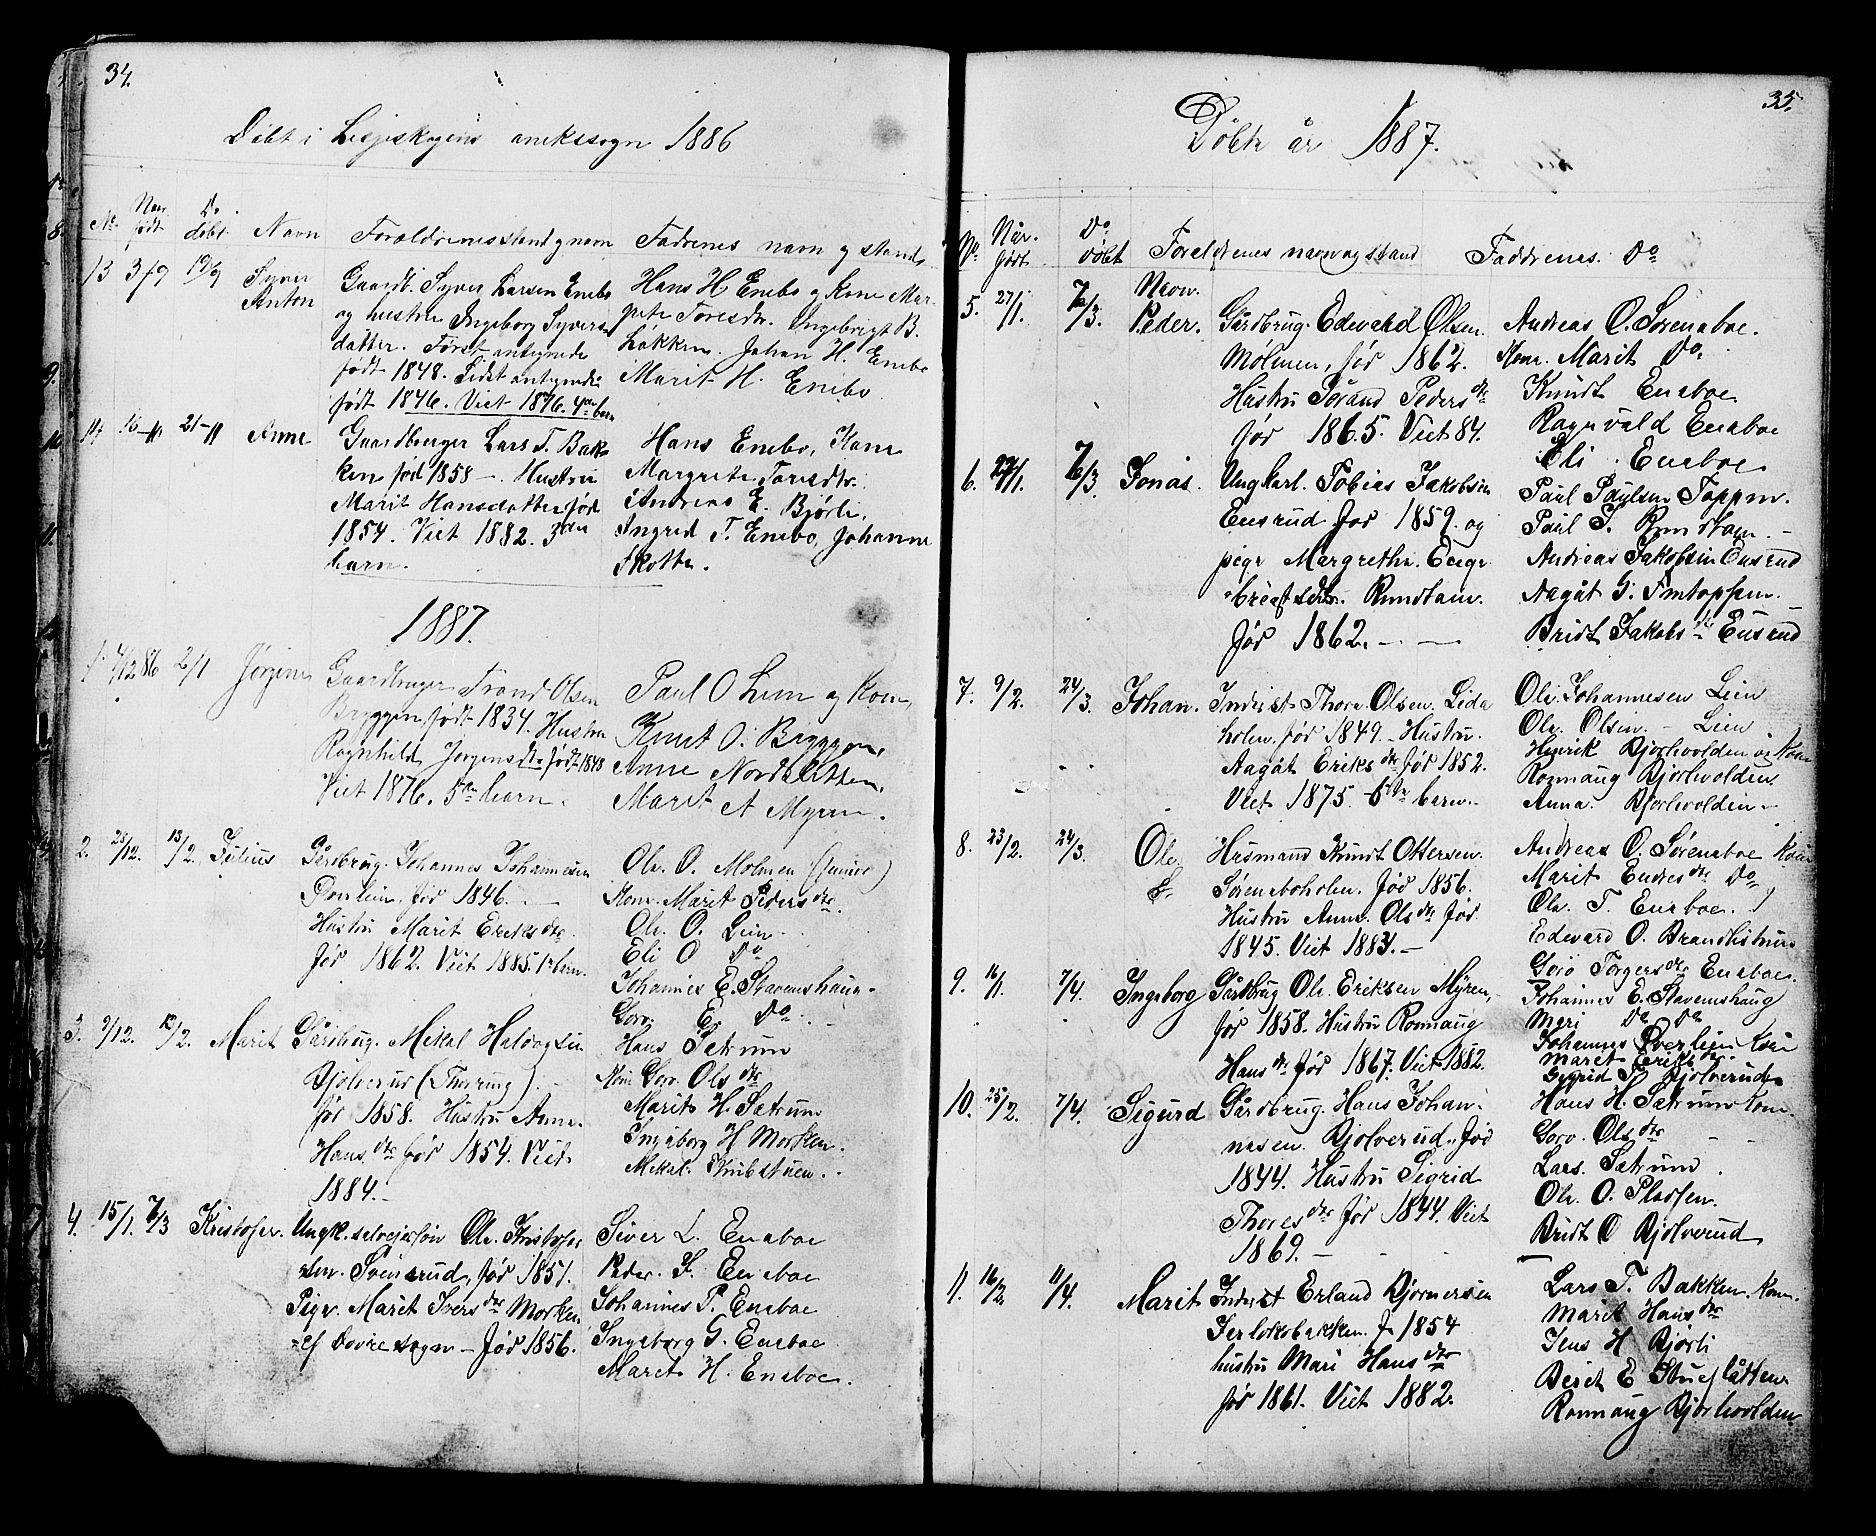 34.
Døbt i Lesjeskogens anekssogn 1886
No Naar født Do døbt Navn Forældrenes stand og navn Fadrenes navn og stand
13 3/9 19/9 Syver Anton
Gaardb. Syver Larsen Enebo
og hustru Ingeborg Syvers
datter. Først antegnede
født 1848. Sidst antegnede
født 1846. Viet 1876. 4de barn
Hans H Enebo og Kone Mar-
grete Toresdtr. Ingebrigt B.
Løkken. Johan H. Enebo
Marit H. Enebo
14 16-11 21-11 Anne
Gaardbruger Lars T. Bak-
ken fød 1858 — Hustru
Marit Hansdatter fød
1854. Viet 1882. 3die
barn.
Hans Enebo, Kone
Margrete Toresdtr.
Andreas E. Bjørli,
Ingrid T. Enebo, Johanne
Skotte.
1887.
1. 4/12 86 2/1 Jørgine
Gaardbruger Trond Olsen
Bryggen, født 1834. Hustru
Ragnhild Jørgensdtr født 1848
Viet 1876. 5te barn.
Paul O Lein og Kone,
Knut O. Bryggen,
Anne Nordsletten,
Marit A Myren.
2. 28/12. 13/2. Julius
Gårdbrug. Johannes Johannesen
Fød 1846. —
Hustru Marit Eriksdtr.
fød 1862. Viet 1885. 1te barn.
Ole. O. Molmen (junior)
Kone. Marit Pedersdtr.
Ole. O. Lein.
Eli O Do
Johannes E. Stavemshaug.
Goro. E. Do
3. 9/12. 13/2. Marit
Gårdbrug. Mikal Halvorsen
Bjølverud (Thøring).
fød 1858. Hustru Anne.
Hansdtr fød 1854. Viet
1884.—
Hans Sætrum
Kone Goro. Olsdtr
Marit H. Sætrum
Ingeborg H Morken.
Mikal. Stubstuen.
4. 15/1. 7/3 Kristofer.
Ungk. selveiersøn Ole. Kristofer-
sen. Sveinerud, fød 1857.
Pige. Marit Iversdtr Morken
af Dovre sogn — fød 1856.
Siver L. Eneboe
Peder. S. Eneboe
Johannes P. Eneboe
Ingeborg G. Eneboe
Marit H. Eneboe.
35.
Døbte år 1887.
No Når. født Do døbt Navn. Foreldrenes navn og stand Faddrenes. Do
5. 27/1. 7/3. Peder.
Gårdbrug. Edevald Olsen.
Mølmen, fød 1862.
Hustru Pedersdtr
fød 1865. Viet 84.
Andreas O. Sørenaboe.
Kone. Marit Do.
Knudt Eneboe
Ragnvald Eneboe
Eli. Eneboe
6. 7/3. Jonas.
Ungkarl. Tobias Jakobsen
Eensrud fød 1859. og
pige Margrethe. Enge-
brigtsdtr. Rundtom.
fød 1862.— —
Paul Paulsen Toppen.
Paul J. Rundtom. —
Andreas Jakobsen Eensrud
Aagåt G. Tmtoppen.
Bridt Jakobsdtr Eensrud
7. 9/2. 24/3. Johan.
Inderst Thore Olsen. Lida
holen fød 1849. Hustru.
Aagåt Eriksdtr fød 1852.
Viet 1875. 5te barn.
Ole. Johannesen Lein
Ole. Olsen. — Lein
Henrik Bjorlivolden og Kone
Ronnaug Bjorlivolden
Anna. Bjorlivolden.
8. 23/2. 24/3. Ole.
Husmand Knudt Ottersen.
Sørenaboholen. fød 1856.
Hustru Anne. Olsdtr fød
1845. Viet 1883.—
Andreas O. Sørenaboe Kone
Marit Endresdtr Do
Ole. T. Eneboe.
Edevard O. Brandlistuen
Goro Torgersdtr Eneboe.
9. 7/4. Ingeborg
Gårdbrug Ole. Eriksen Myren,
fød 1858. Hustru Ronnaug
Hansdtr fød 1867. Viet 1882.
Johannes E. Stavemshaug
Mari Do Do
Johannes Øverlien Kone
Marit Eriksdtr.
Sigrid T. Bjølverud
10. 25/2. 7/4. Sigurd
Gårdbrug. Hans Johan-
nesen. Bjølverud. fød
1844. Hustru Sigrid
Thoresdtr fød 1844. Viet
1869.—
Hans H. Sætrum Kone.
Goro. Olsdtr — —
Lars. Sætrum.
Ole. O. Pladsen.
Bridt O Bjølverud
11. 16/2. 11/4. Marit
Inderst Erland Bjørnersen
f. 1854
hustru Mari Hansdtr
fød 1861. Viet 1882.
Lars T. Bakken. Kone.
Marit Hansdtr
Jens H Bjørli
Berit E Stueflåtten
Ronnaug Bjorlivolden